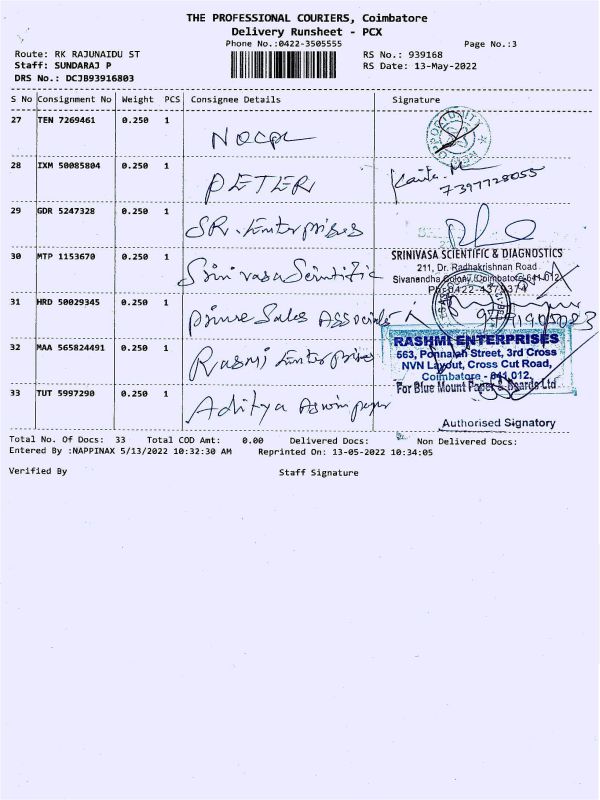 THE PROFESSIONAL COURIERS, Coimbatore
Delivery Runsheet - PCX
Phone No.:0422-3505555
Page No.:3
Route: RK RAJUNAIDU ST
RS No.: 939168
Staff: SUNDARAJ P
RS Date: 13-May-2022
DRS No.: DCJB93916803
S No Consignment No Weight PCS Consignee Details Signature
27 TEN 7269461 0.250 1
OPPORTUNITY
28 IXM 50085804 0.250 1 PETER
7397728055
29 GDR 5247328 0.250 1 SR. Enterprises
30 MTP 1153670 0.250 1 Srinivasa Scientific
SRINIVASA SCIENTIFIC & DIAGNOSTICS
211, Dr. Radhakrishnan Road
Sivanandha Colony, Coimbatore-641 012
31 HRD 50029345 0.250 1 Prime Sales Associate
32 MAA 565824491 0.250 1 Rasmi Enterprises
RASHMI ENTERPRISES
563, Ponnaiah Street, 3rd Cross
NVN Layout, Cross Cut Road,
Coimbatore - 641 012.
For Blue Mount Paper & Boards Ltd
33 TUT 5997290 0.250 1 Aditya Aswin paper
Authorised Signatory
Total No. Of Docs: 33 Total COD Amt: 0.00 Delivered Docs: Non Delivered Docs:
Entered By :NAPPINAX 5/13/2022 10:32:30 AM Reprinted On: 13-05-2022 10:34:05
Verified By Staff Signature